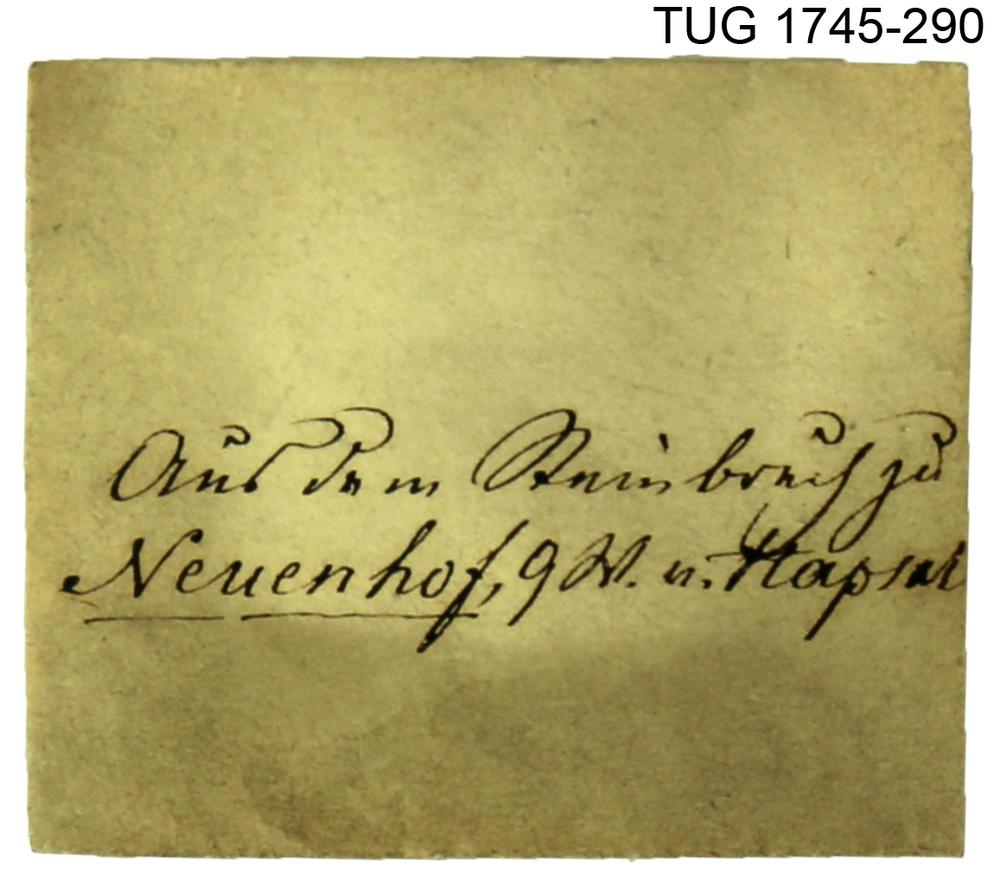 TUG 1745-290
Aus dem Steinbruch zu
Neuenhof, 9 W. v. Hapsal